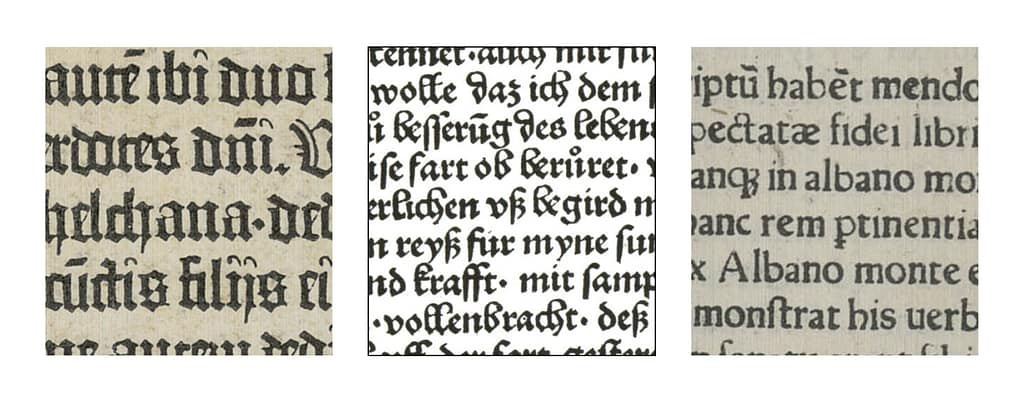 autē ibi duo
dn̄i.
helchana· ded
cūctis filijs ei
autem
tennet·auch mit
wolle daz ich dem
besserūg des lebens
fart ob berůret·
erlichen vß begird
reyß für myne
krafft· mit samp
·vollenbracht· deß
iptū habēt mendo
pectatæ fidei libri
anqꝫ in albano mo
anc rem ꝑtinentia
x Albano monte e
monſtrat his uerb